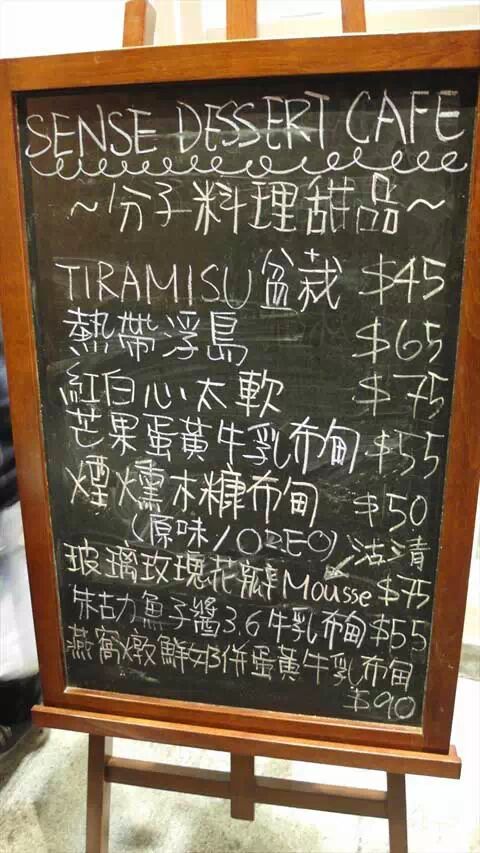 SENSE DESSERT CAFE
~分子料理甜品~
TIRAMISU盆栽 $45
熱帶浮島 $65
紅白心太軟 $75
芒果蛋黃牛乳布甸 $55
煙燻木糠布甸 $50
(原味/OREO) 沽清
玻璃玫瑰花瓣Mousse $75
朱古力魚子醬3.6牛乳布甸 $55
燕窩燉鮮奶併蛋黃牛乳布甸
$90